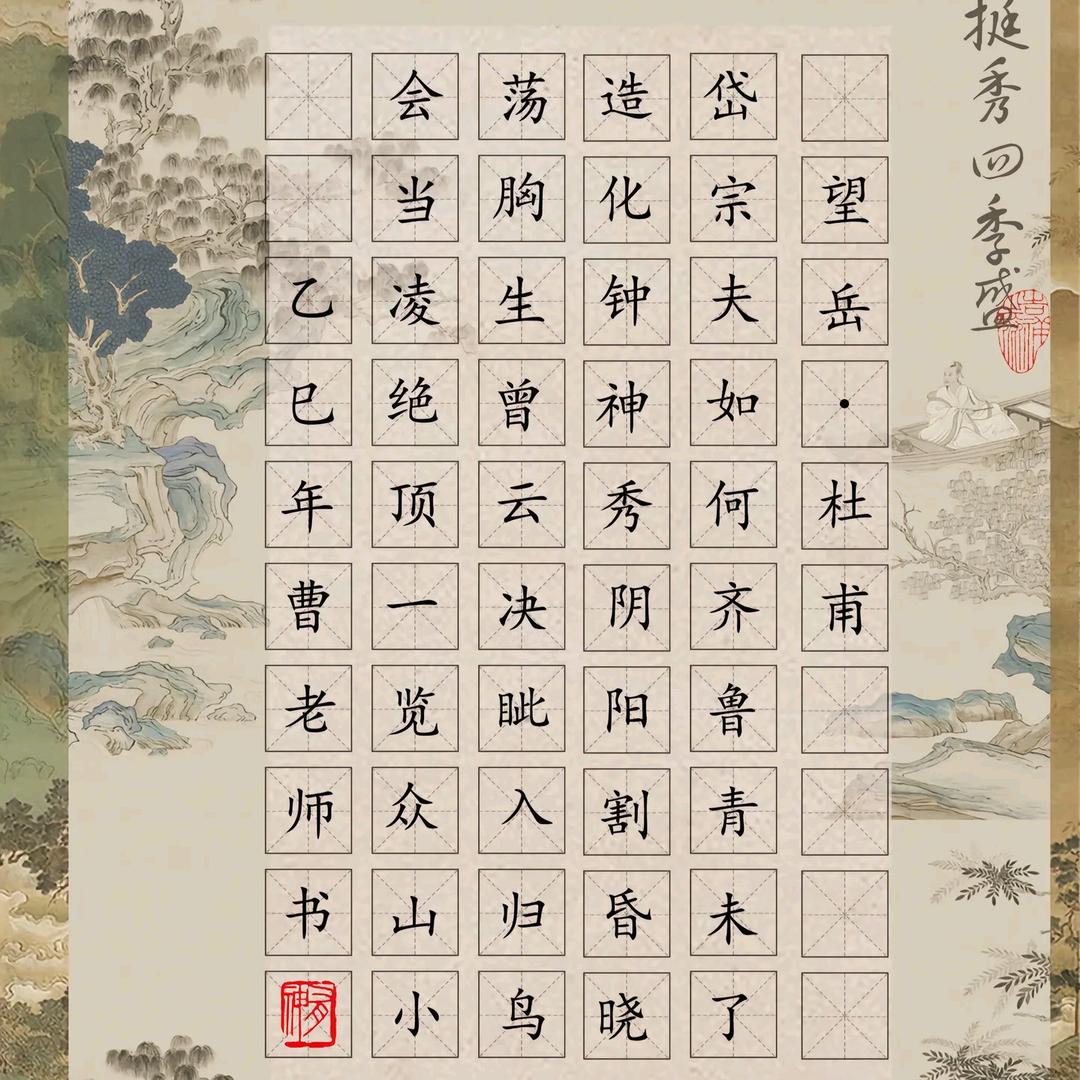 挺秀四季盛
望岳·杜甫
岱宗夫如何齐鲁青未了
造化钟神秀阴阳割昏晓
荡胸生曾云决眦入归鸟
会当凌绝顶一览众山小
乙巳年曹老师书